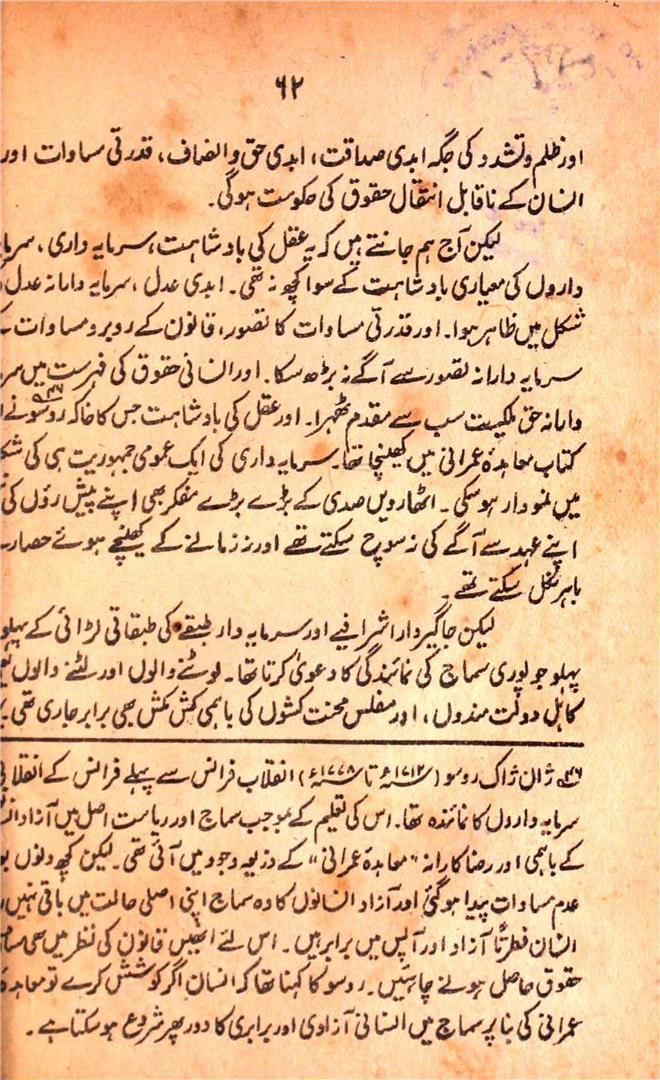 ۶۲
اور ظلم و تشدد کی جگہ ابدی صداقت، ابدی حق و انصاف، قدرتی مساوات اور
انسان کے ناقابل انتقال حقوق کی حکومت ہوگی۔
لیکن آج ہم جانتے ہیں کہ یہ عقل کی بادشاہت، سرمایہ داری، سرمایہ
داروں کی معیاری بادشاہت کے سوا کچھ نہ تھی۔ ابدی عدل، سرمایہ دارانہ عدل
شکل میں ظاہر ہوا۔ اور قدرتی مساوات کا تصور، قانون کے روبرو مساوات کے
سرمایہ دارانہ تصور سے آگے نہ بڑھ سکا۔ اور انسانی حقوق کی فہرست میں سرم
دارانہ حق ملکیت سب سے مقدم ٹھہرا۔ اور عقل کی بادشاہت جس کا خاکہ روسو۴۶؎ نے ا
کتاب معاہدۂ عمرانی میں کھینچا تھا۔ سرمایہ داری کی ایک عمومی جمہوریت ہی کی شک
میں نمودار ہوسکی۔ اٹھارویں صدی کے بڑے بڑے مفکر بھی اپنے پیش روؤں کی
اپنے عہد سے آگے کی نہ سوچ سکتے تھے اور نہ زمانے کے کھینچے ہوئے حصار سے
باہر نکل سکتے تھے۔
لیکن جاگیردار اشرافیے اور سرمایہ دار طبقے کی طبقاتی لڑائی کے پہلو
پہلو جو پوری سماج کی نمائندگی کا دعویٰ کرتا تھا۔ لوٹنے والوں اور لٹنے والوں یع
کاہل دولت مندوں، اور مفلس محنت کشوں کی باہمی کش مکش بھی برابر جاری تھی۔
۴۶؎ ژان ژاک روسو (۱۷۱۲ء تا ۱۷۷۸ء) انقلاب فرانس سے پہلے فرانس کے انقلابی
سرمایہ داروں کا نمائندہ تھا۔ اس کی تعلیم کے بموجب سماج اور ریاست اصل میں آزاد انس
کے باہمی اور رضاکارانہ "معاہدۂ عمرانی" کے ذریعہ وجود میں آئی تھی۔ لیکن کچھ دنوں بع
عدم مساوات پیدا ہوگئی اور آزاد انسانوں کا وہ سماج اپنی اصلی حالت میں باقی نہیں
انسان فطرتاً آزاد اور آپس میں برابر ہیں۔ اس لئے انھیں قانون کی نظر میں بھی مسا
حقوق حاصل ہونے چاہئیں۔ روسو کا کہنا تھا کہ انسان اگر کوشش کرے تو معاہدۂ
عمرانی کی بنا پر سماج میں انسانی آزادی اور برابری کا دور پھر شروع ہوسکتا ہے۔